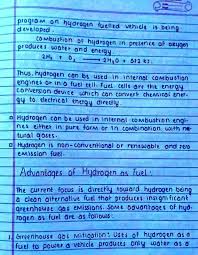 program on hydrogen fuelled vehicle is being
developed.
Combustion of hydrogen in presence of oxygen
produces water and energy
2H₂ + O₂ → 2H₂O + 572 kJ.
Thus, hydrogen can be used in internal combustion
engines or in a fuel cell. Fuel cells are the energy
conversion device which can convert chemical ener-
gy to electrical energy directly.
Hydrogen can be used in internal combustion engi-
nes either in pure form or in combination with na-
tural gases.
Hydrogen is non-conventional or renewable and zero
emission fuel.
Advantages of Hydrogen as Fuel:
The current focus is directly toward hydrogen being
a clean alternative fuel that produces insignificant
greenhouse gas emissions. Some advantages of hyd-
rogen as fuel are as follows:
1. Greenhouse Gas Mitigation: Uses of hydrogen as a
fuel to power a vehicle produces only water as a